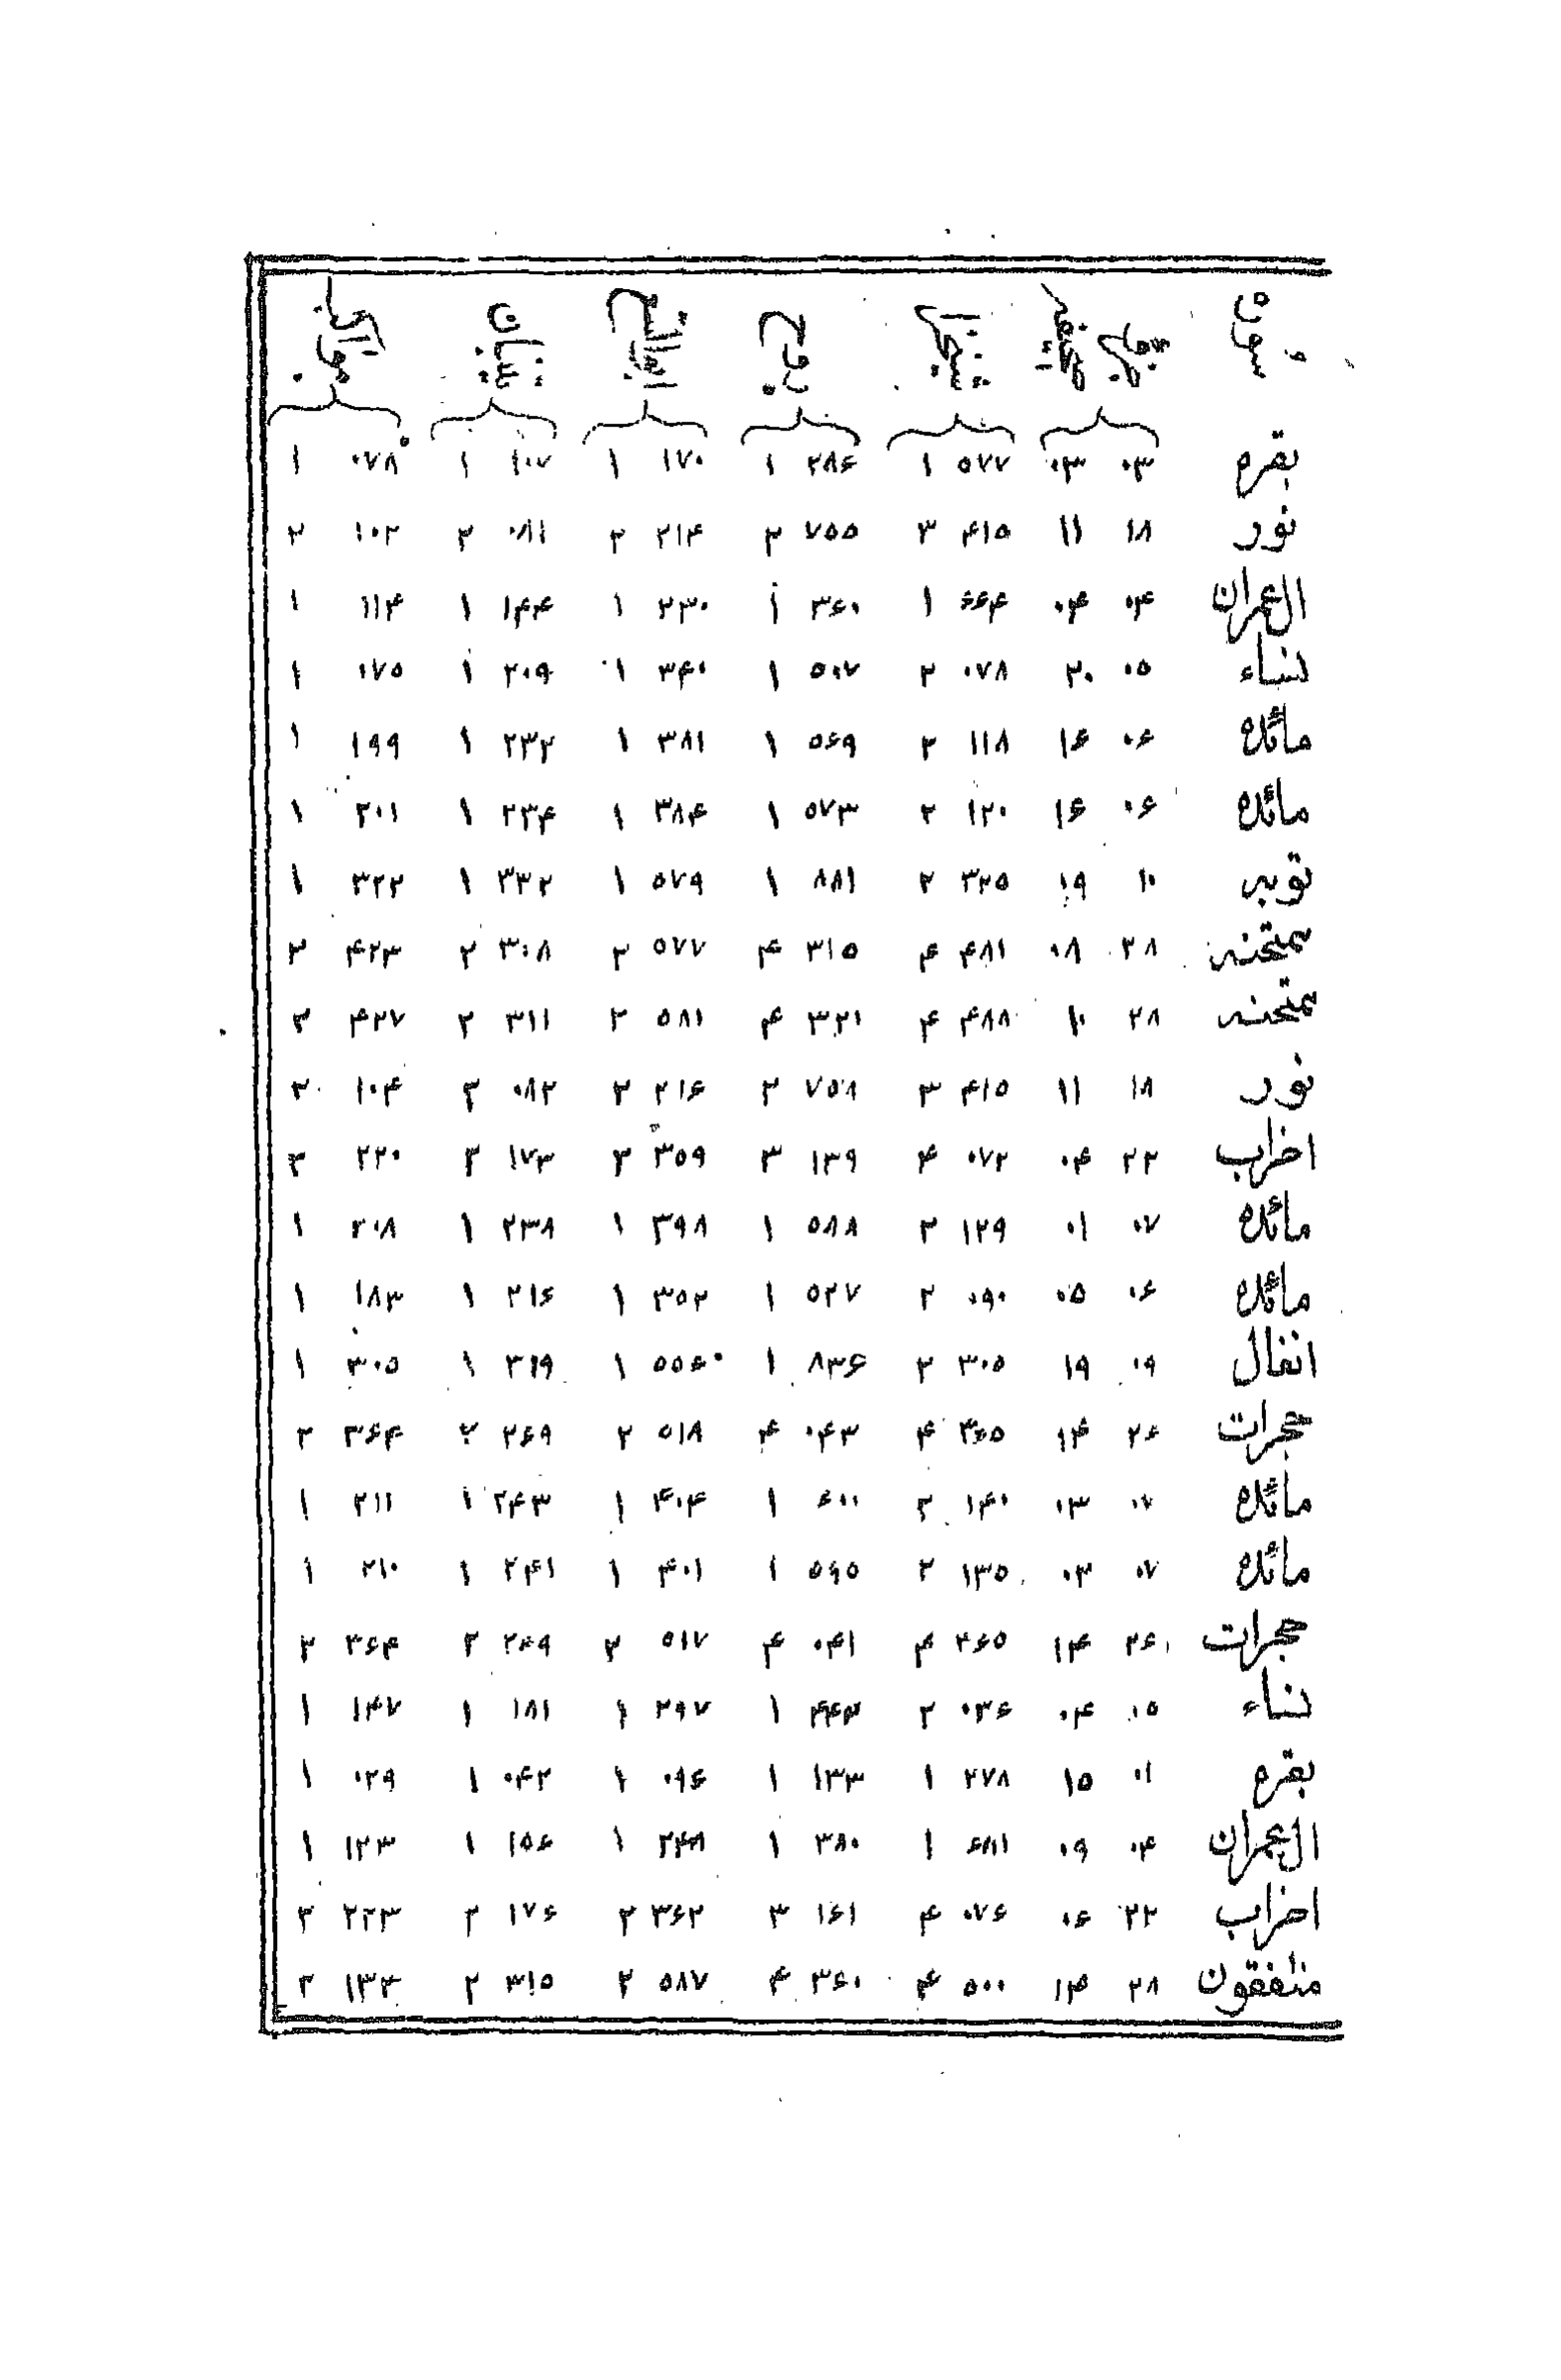 بقره ۰۳ ۰۳ ۵۷۷ ۱ ۲۸۶ ۱ ۱۷۰ ۱ ۱۰۷ ۱ ۰۷۸ ۱
نور ۱۸ ۱۱ ۴۱۵ ۳ ۷۵۵ ۲ ۲۱۴ ۲ ۰۸۱ ۲ ۱۰۲ ۲
ال عمران ۰۴ ۰۴ ۶۶۴ ۱ ۳۶۰ ۱ ۲۳۰ ۱ ۱۴۴ ۱ ۱۱۴ ۱
نساء ۰۵ ۲۰ ۰۷۸ ۲ ۵۰۷ ۱ ۳۴۰ ۱ ۲۰۹ ۱ ۰۷۵ ۱
مائده ۰۶ ۱۶ ۱۱۸ ۲ ۵۶۹ ۱ ۳۸۱ ۱ ۲۳۲ ۱ ۱۹۹ ۱
مائده ۰۶ ۱۶ ۱۲۰ ۲ ۵۷۳ ۱ ۳۸۴ ۱ ۲۳۴ ۱ ۲۰۱ ۱
توبه ۱۰ ۱۹ ۳۲۵ ۲ ۸۸۱ ۱ ۵۷۹ ۱ ۳۳۲ ۱ ۳۲۲ ۱
ممتحنه ۲۸ ۰۸ ۴۸۱ ۴ ۳۱۵ ۴ ۵۷۷ ۲ ۳۰۸ ۲ ۴۲۳ ۲
ممتحنه ۲۸ ۱۰ ۴۸۸ ۴ ۳۲۱ ۴ ۵۸۱ ۲ ۳۱۱ ۲ ۴۲۷ ۲
نور ۱۸ ۱۱ ۴۱۵ ۳ ۷۵۸ ۲ ۲۱۶ ۲ ۰۸۲ ۲ ۱۰۴ ۲
احزاب ۲۲ ۰۴ ۰۷۲ ۴ ۱۳۹ ۳ ۳۵۹ ۲ ۱۷۳ ۲ ۲۲۰ ۲
مائده ۰۷ ۰۱ ۱۲۹ ۲ ۵۸۸ ۱ ۳۹۸ ۱ ۲۳۸ ۱ ۲۰۸ ۱
مائده ۰۶ ۰۵ ۰۹۰ ۲ ۵۲۷ ۱ ۳۵۲ ۱ ۲۱۶ ۱ ۱۸۳ ۱
انفال ۰۹ ۱۹ ۳۰۵ ۲ ۸۳۶ ۱ ۵۵۶ ۱ ۳۱۹ ۱ ۳۰۵ ۱
حجرات ۲۶ ۱۴ ۳۶۵ ۴ ۰۴۳ ۴ ۵۱۸ ۲ ۲۶۹ ۲ ۳۶۴ ۲
مائده ۰۷ ۰۳ ۱۴۰ ۲ ۶۰۰ ۱ ۴۰۴ ۱ ۲۴۳ ۱ ۲۱۱ ۱
مائده ۰۷ ۰۳ ۱۳۵ ۲ ۵۹۵ ۱ ۴۰۱ ۱ ۲۴۱ ۱ ۲۱۰ ۱
حجرات ۲۶ ۱۴ ۳۶۵ ۴ ۰۴۱ ۴ ۵۱۷ ۲ ۲۶۹ ۲ ۳۶۴ ۲
نساء ۰۵ ۰۴ ۰۳۶ ۲ ۴۴۳ ۱ ۲۹۷ ۱ ۱۸۱ ۱ ۱۴۷ ۱
بقره ۰۱ ۱۵ ۲۷۸ ۱ ۱۳۳ ۱ ۰۹۶ ۱ ۰۴۲ ۱ ۰۲۹ ۱
ال عمران ۰۴ ۰۹ ۶۸۱ ۱ ۳۸۰ ۱ ۲۴۸ ۱ ۱۵۶ ۱ ۱۲۳ ۱
احزاب ۲۲ ۰۶ ۰۷۶ ۴ ۱۶۱ ۳ ۳۶۲ ۲ ۱۷۶ ۲ ۲۲۳ ۲
منفقون ۲۸ ۱۴ ۵۰۰ ۴ ۳۶۰ ۴ ۵۸۷ ۲ ۳۱۵ ۲ ۱۳۳ ۲